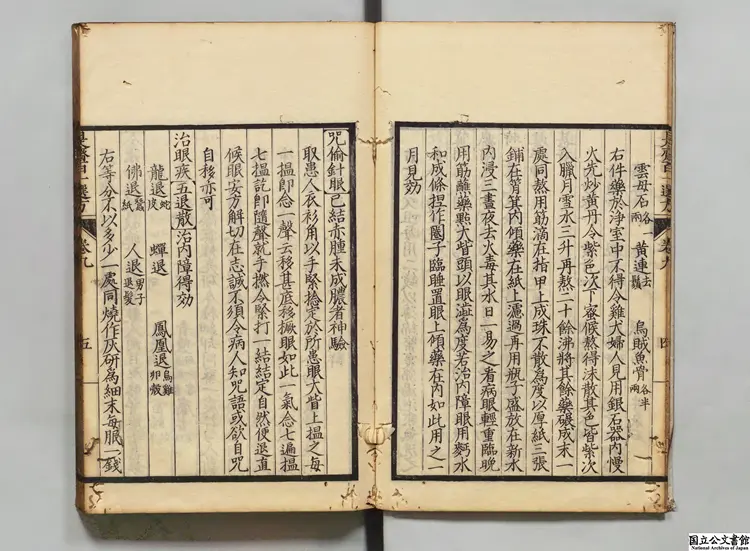 雲母石各一兩 黃連去鬚 烏賊魚骨各半兩
右件藥於淨室中不得令雞犬婦人見用銀石器內慢
火先炒黃丹令紫色次下蜜候熬得沫散其色皆紫次
入臘月雪水三升再熬二十餘沸將其餘藥碾成末一
處同熬用筋滴在指甲上成珠不散為度以厚紙三張
鋪在筲箕內傾藥在紙上濾過再用瓶子盛放在新水
內浸三晝夜去火毒其水日一易之看病眼輕重臨晚
用筋蘸藥點大眥頭以眼澁為度若治內障眼用麪水
和成條捏作圈子臨睡置眼上傾藥在內如此用之一
月見効
呪偷針眼已結亦腫未成膿者神驗
取患人衣衫角以手緊捻定於所患眼大眥上揾之每
一揾即念一聲云移甚底移撅眼如此一氣念七遍揾
七揾訖即隨聲就手撚令緊打一結結定自然便退直
候眼安方解切在志誠不須令病人知呪語或欲自呪
自移亦可
治眼疾五退散治內障得効
龍退蛇皮 蟬退 鳳凰退烏雞卵殼
佛退蠶紙 人退男子退髮
右等分不以多少一處同燒作灰研為細末每服一錢
卷九 五
国立公文書館
National Archives of Japan